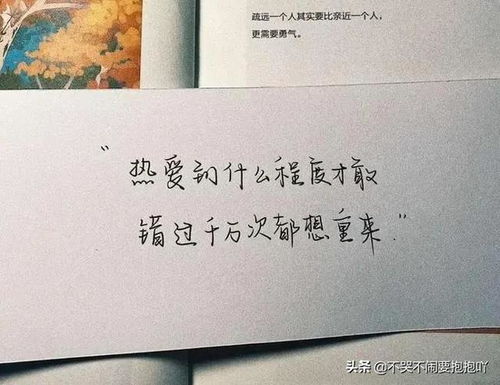 疏远一个人其实要比亲近一个人，
更需要勇气。
“热爱到什么程度才敢
错过千万次都想重来.”
头条 @不哭不闹要抱抱吖